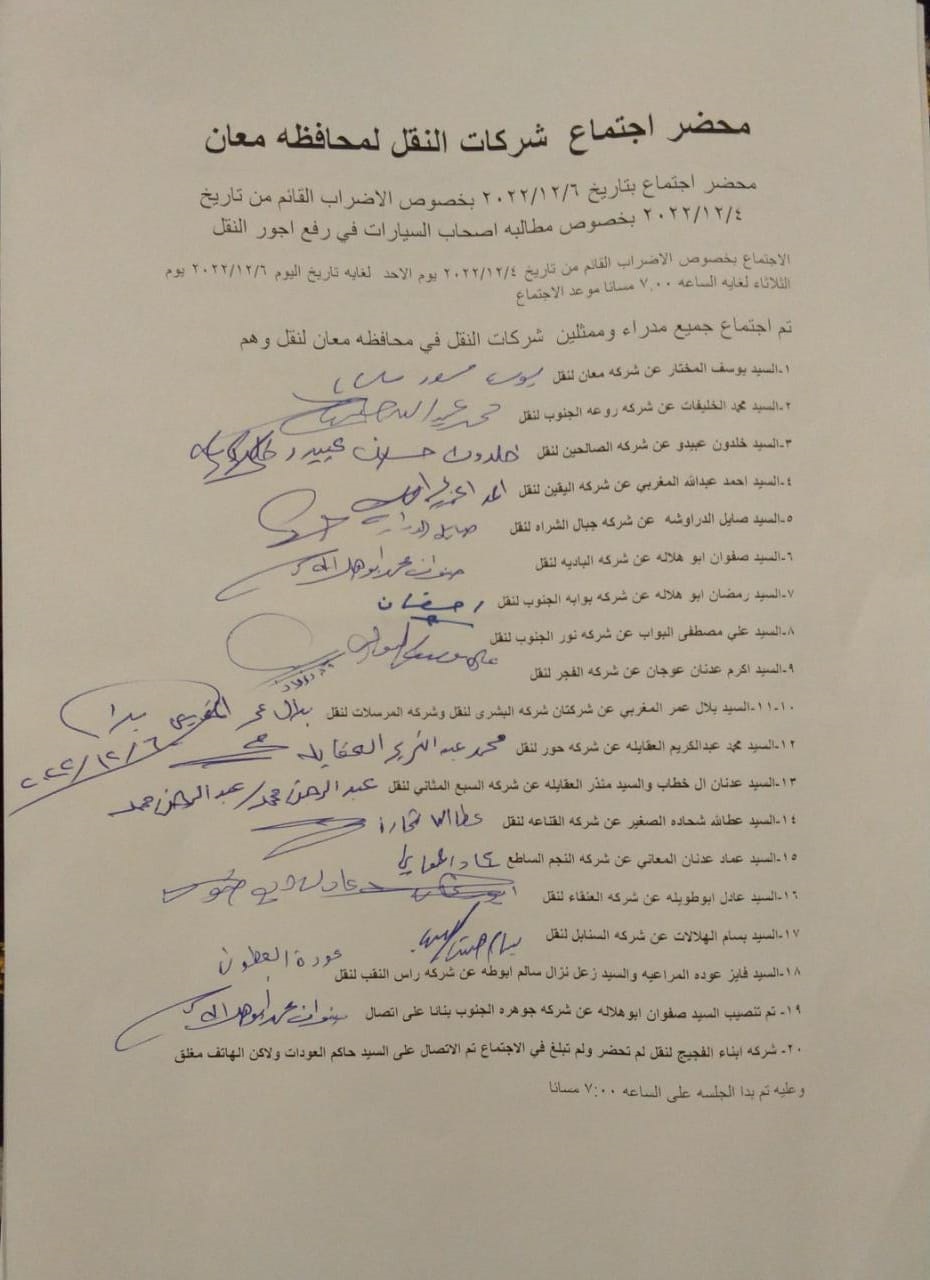 محضر اجتماع شركات النقل لمحافظه معان
محضر اجتماع بتاريخ ٢٠٢٢/١٢/٦ بخصوص الاضراب القائم من تاريخ
٢٠٢٢/١٢/٤ بخصوص مطالبه اصحاب السيارات في رفع اجور النقل
الاجتماع بخصوص الاضراب القائم من تاريخ ٢٠٢٢/١٢/٤ يوم الاحد لغايه تاريخ اليوم ٢٠٢٢/١٢/٦ يوم
الثلاثاء لغايه الساعه ٧,٠٠ مسانا موعد الاجتماع
تم اجتماع جميع مدراء وممثلين شركات النقل في محافظه معان لنقل وهم
١-السيد يوسف المختار عن شركه معان لنقل
٢-السيد محمد الخليفات عن شركه روعه الجنوب لنقل محمد عبدالله
٣-السيد خلدون عبيدو عن شركه الصالحين لنقل خلدون حسان عبيدو
٤-السيد احمد عبدالله المغربي عن شركه اليقين لنقل
٥-السيد صايل الدراوشه عن شركه جبال الشراه لنقل صايل
٦-السيد صفوان ابو هلاله عن شركه الباديه لنقل صفوان محمد ابوهلاله
٧-السيد رمضان ابو هلاله عن شركه بوابه الجنوب لنقل رمضان
٨-السيد علي مصطفى البواب عن شركه نور الجنوب لنقل علي مصطفى البواب
٩-السيد اكرم عدنان عوجان عن شركه الفجر لنقل
١٠-١١-السيد بلال عمر المغربي عن شركتان شركه البشرى لنقل وشركه المرسلات لنقل بلال عمر المغربي
٢٠٢٢/١٢/٦
١٢-السيد محمد عبدالكريم العقايله عن شركه حور لنقل محمد عبدالكريم العقايله
١٣-السيد عدنان ال خطاب والسيد منذر العقايله عن شركه السبع المثاني لنقل عبدالرحمن محمد/عبدالرحمن محمد
١٤-السيد عطالله شحاده الصغير عن شركه القناعه لنقل عطالله شحاده
١٥-السيد عماد عدنان المعاني عن شركه النجم الساطع عماد المعاني
١٦-السيد عادل ابوطويله عن شركه العنقاء لنقل
١٧-السيد بسام الهلالات عن شركه السنابل لنقل بسام
عودة
١٨-السيد فايز عوده المراعيه والسيد زعل نزال سالم ابوطه عن شركه راس النقب لنقل
١٩- تم تنصيب السيد صفوان ابوهلاله عن شركه جوهره الجنوب بنانا على اتصال صفوان محمد ابوهلاله
٢٠- شركه ابناء الفجيج لنقل لم تحضر ولم تبلغ في الاجتماع تم الاتصال على السيد حاكم العودات ولاكن الهاتف مغلق
وعليه تم بدا الجلسه على الساعه ٧:٠٠ مسانا